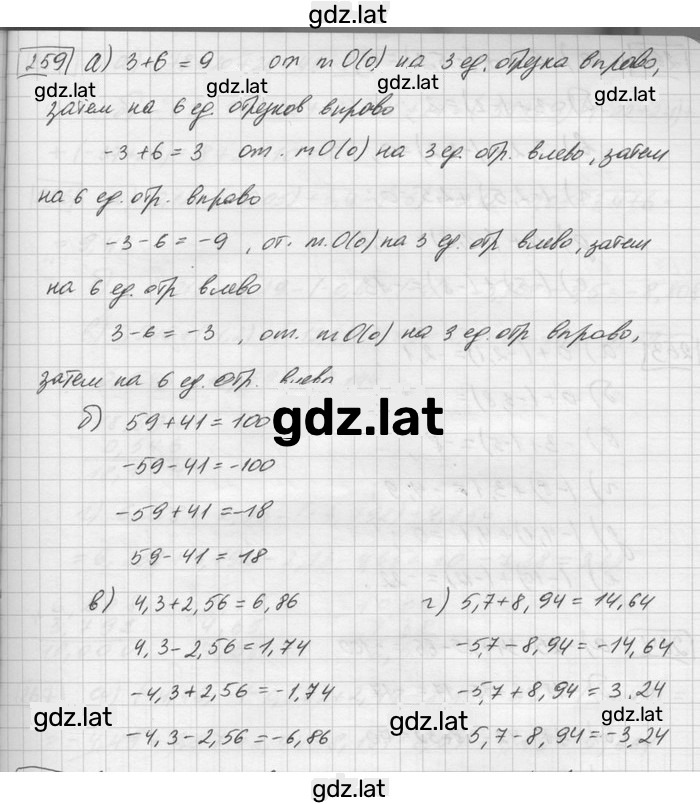 gdz.lat
259 а) 3+6=9 от т O(o) на 3 ед. отрезка вправо,
gdz.lat gdz.lat gdz.lat
затем на 6 ед. отрезков вправо
-3+6=3 от. тO(o) на 3 ед. отр. влево, затем
на 6 ед. отр. вправо
-3-6=-9, от. т.O(o) на 3 ед. отр влево, затем
на 6 ед. отр влево
3-6=-3, от. тO(o) на 3 ед. отр вправо,
затем на 6 ед. отр. влево
б) 59+41=100
gdz.lat
-59-41=-100
-59+41=-18
59-41=18
в) 4,3+2,56=6,86 г) 5,7+8,94=14,64
4,3-2,56=1,74 -5,7-8,94=-14,64
-4,3+2,56=-1,74 -5,7+8,94=3.24
gdz.lat gdz.lat gdz.lat
-4,3-2,56=-6,86 5,7-8,94=-3,24
gdz.lat